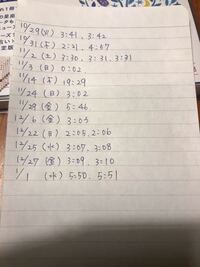 10/29(火) 3:41. 3:42
10/31(木) 2:21. 4:07
11/2 (土) 3:30. 3:31. 3:31
11/3 (日) 0:02
11/14 (木) 19:29
11/24 (日) 3:02
11/29 (金) 5:46
12/6 (金) 3:03
12/22 (日) 2:05. 2:06
12/25 (水) 3:07. 3:08
12/27 (金) 3:09. 3:10
1/1 (水) 5:50. 5:51